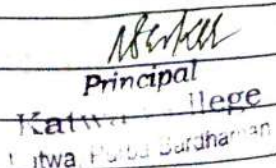 Principal
Katwa College
Katwa, Purba Bardhaman